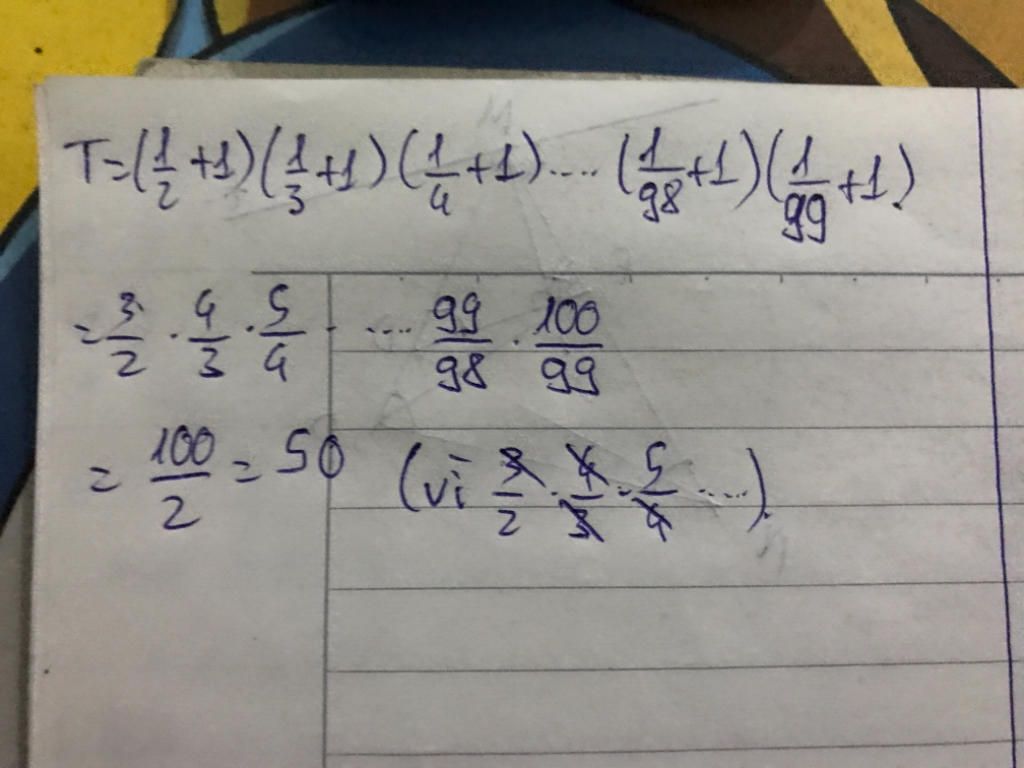 T=(1/2 +1)(1/3 +1)(1/4 +1).... (1/98 +1)(1/99 +1)
= 3/2 . 4/3 . 5/4 . .... 99/98 . 100/99
= 100/2 = 50 (vì 3/2 . 4/3 . 5/4 ....).